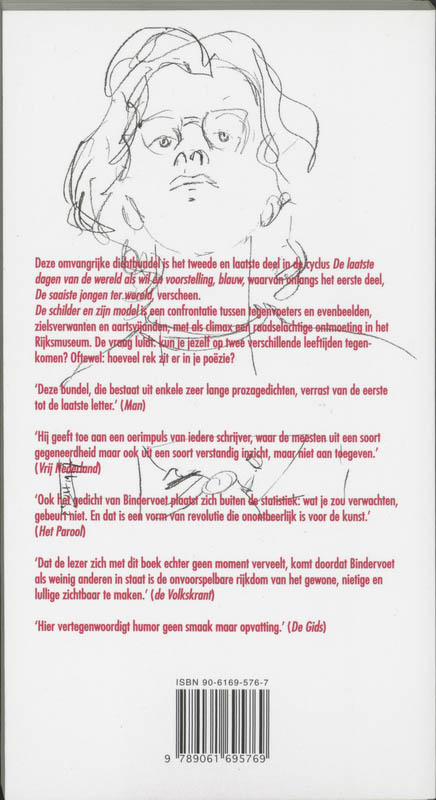 Deze omvangrijke dichtbundel is het tweede en laatste deel in de cyclus De laatste
dagen van de wereld als wil en voorstelling, blauw, waarvan onlangs het eerste deel,
De saaiste jongen ter wereld, verscheen.
De schilder en zijn model is een confrontatie tussen tegenvoeters en evenbeelden,
zielsverwanten en aartsvijanden, met als climax een raadselachtige ontmoeting in het
Rijksmuseum. De vraag luidt: kun je jezelf op twee verschillende leeftijden tegen-
komen? Oftewel: hoeveel rek zit er in je poëzie?
‘Deze bundel, die bestaat uit enkele zeer lange prozagedichten, verrast van de eerste
tot de laatste letter.’ (Man)
‘Hij geeft toe aan een oerimpuls van iedere schrijver, waar de meesten uit een soort
gegeneerdheid maar ook uit een soort verstandig inzicht, maar niet aan toegeven.’
(Vrij Nederland)
‘Ook het gedicht van Bindervoet plaatst zich buiten de statistiek: wat je zou verwachten,
gebeurt niet. En dat is een vorm van revolutie die onontbeerlijk is voor de kunst.’
(Het Parool)
‘Dat de lezer zich met dit boek echter geen moment verveelt, komt doordat Bindervoet
als weinig anderen in staat is de onvoorspelbare rijkdom van het gewone, nietige en
lullige zichtbaar te maken.’ (de Volkskrant)
‘Hier vertegenwoordigt humor geen smaak maar opvatting.’ (De Gids)
ISBN 90-6169-576-7
9 789061 695769